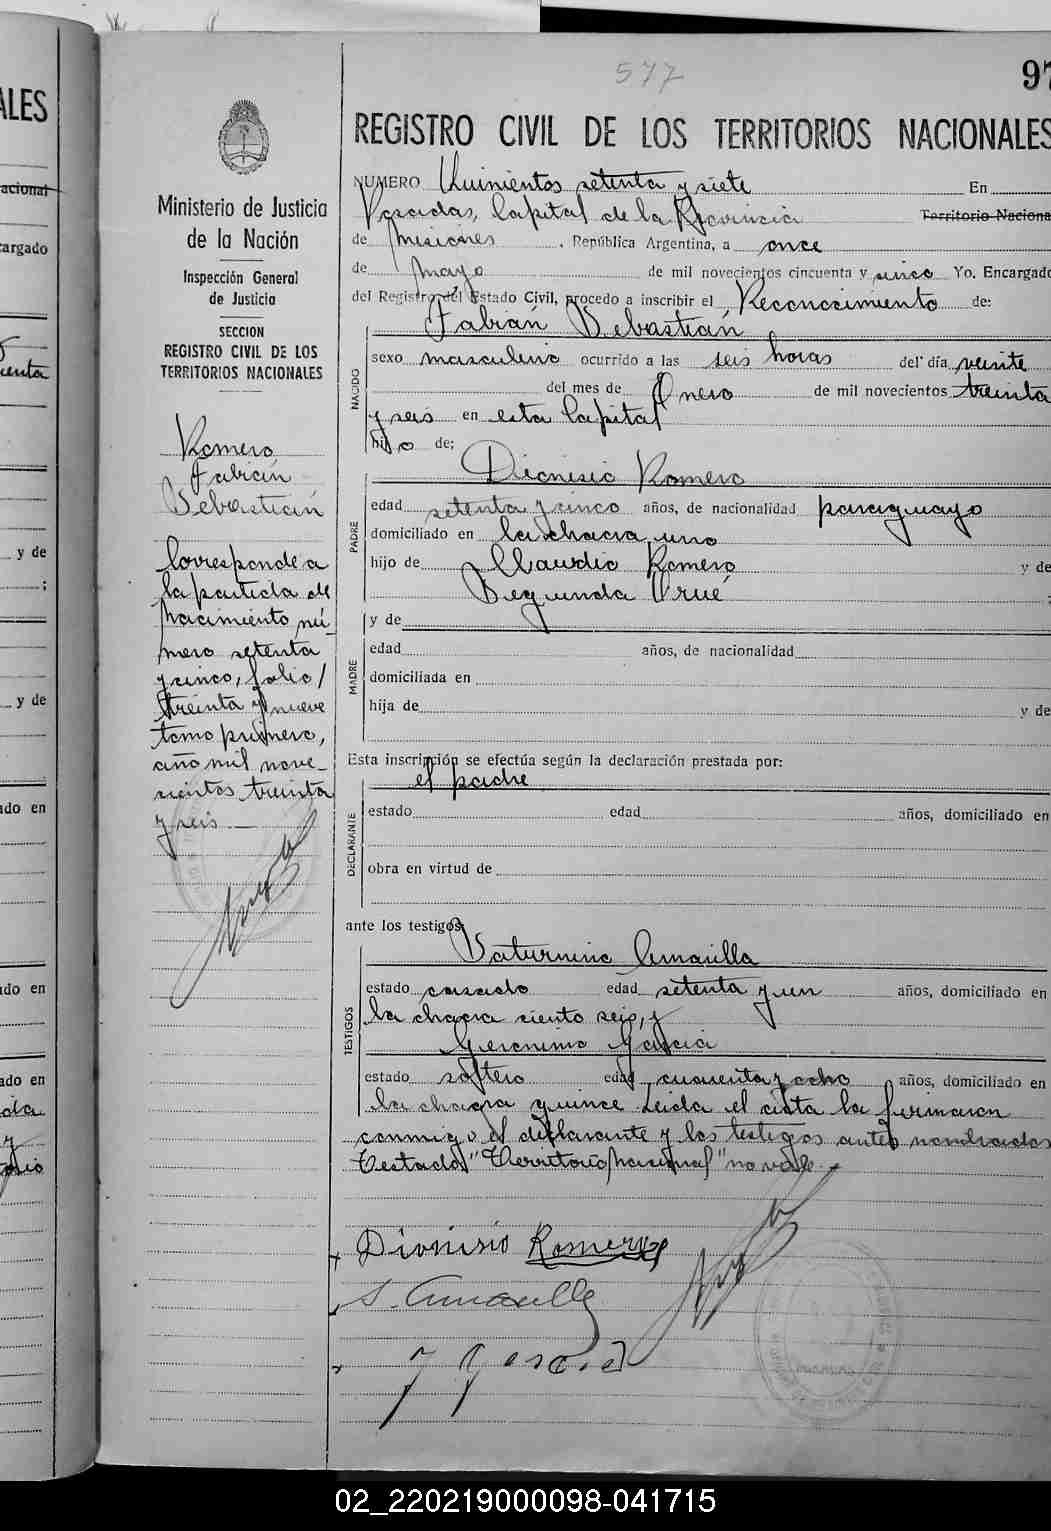 577
97
ALES
REGISTRO CIVIL DE LOS TERRITORIOS NACIONALES
Ministerio de Justicia
de la Nación
Inspección General
de Justicia
SECCION
REGISTRO CIVIL DE LOS
TERRITORIOS NACIONALES
Romero
Fabián
Sebastián
Corresponde a
la partida de
nacimiento nú-
mero setenta
y cinco, folio/
treinta y nueve
tomo primero,
año mil nove-
cientos treinta
y seis
NUMERO Quinientos setenta y siete En
Posadas, Capital de la Provincia Territorio Naciona
de Misiones, República Argentina, a once
de mayo de mil novecientos cincuenta y cinco Yo. Encargado
del Registro del Estado Civil, procedo a inscribir el Reconocimiento de:
Fabián Sebastián
NACIDO
sexo masculino ocurrido a las seis horas del día veinte
del mes de Enero de mil novecientos treinta
y seis en esta Capital
hijo de;
Dionisio Romero
PADRE
edad setenta y cinco años, de nacionalidad paraguayo
domiciliado en la chacra uno
hijo de Claudio Romero y de
Segunda Orué ;
MADRE
y de
edad años, de nacionalidad
domiciliada en
hija de y de
Esta inscripción se efectúa según la declaración prestada por:
el padre
DECLARANTE
estado edad años, domiciliado en
obra en virtud de
ante los testigos:
Saturnino Amarilla
TESTIGOS
estado casado edad setenta y un años, domiciliado en
la chacra ciento seis, y
Geronimo Garcia
estado soltero edad cuarenta y ocho años, domiciliado en
la chacra quince Leida el acta la firmaron
conmigo el declarante y los testigos antes nombrados
Testado "Territorio Nacional" no vale.-
Dionisio Romero
S. Amarilla
J Garcia
acional
cargado
uenta
y de
;
y de
ado en
ado en
ado en
02_220219000098-041715